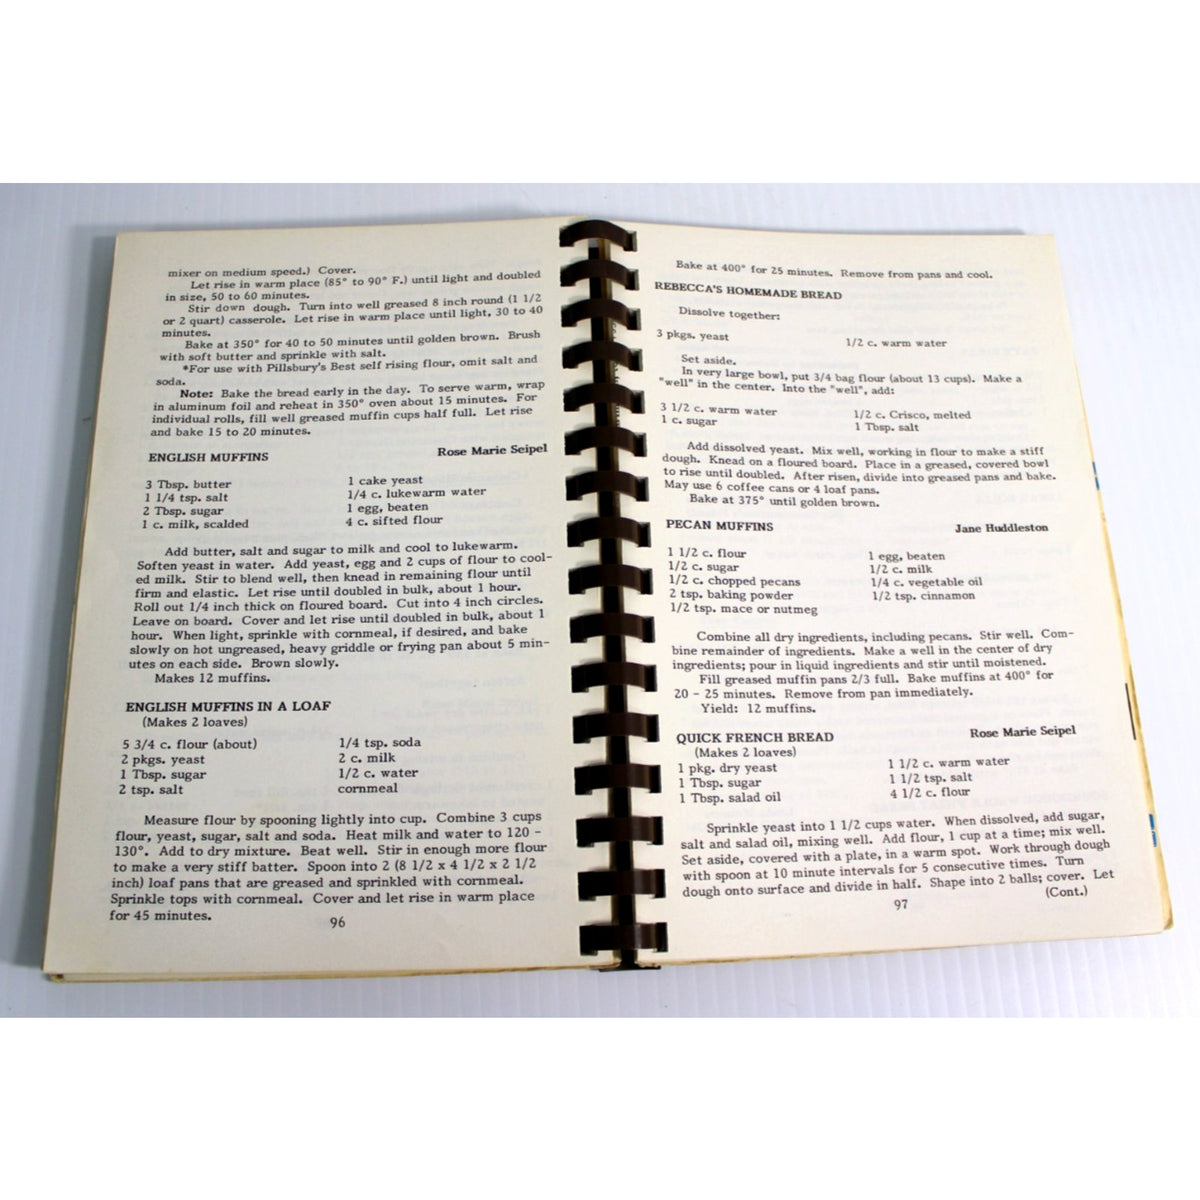 mixer on medium speed.) Cover.
Let rise in warm place (85° to 90° F.) until light and doubled
in size, 50 to 60 minutes.
Stir down dough. Turn into well greased 8 inch round (1 1/2
or 2 quart) casserole. Let rise in warm place until light, 30 to 40
minutes.
Bake at 350° for 40 to 50 minutes until golden brown. Brush
with soft butter and sprinkle with salt.
*For use with Pillsbury's Best self rising flour, omit salt and
soda.
Note: Bake the bread early in the day. To serve warm, wrap
in aluminum foil and reheat in 350° oven about 15 minutes. For
individual rolls, fill well greased muffin cups half full. Let rise
and bake 15 to 20 minutes.
ENGLISH MUFFINS Rose Marie Seipel
3 Tbsp. butter 1 cake yeast
1 1/4 tsp. salt 1/4 c. lukewarm water
2 Tbsp. sugar 1 egg, beaten
1 c. milk, scalded 4 c. sifted flour
Add butter, salt and sugar to milk and cool to lukewarm.
Soften yeast in water. Add yeast, egg and 2 cups of flour to cool-
ed milk. Stir to blend well, then knead in remaining flour until
firm and elastic. Let rise until doubled in bulk, about 1 hour.
Roll out 1/4 inch thick on floured board. Cut into 4 inch circles.
Leave on board. Cover and let rise until doubled in bulk, about 1
hour. When light, sprinkle with cornmeal, if desired, and bake
slowly on hot ungreased, heavy griddle or frying pan about 5 min-
utes on each side. Brown slowly.
Makes 12 muffins.
ENGLISH MUFFINS IN A LOAF
(Makes 2 loaves)
5 3/4 c. flour (about) 1/4 tsp. soda
2 pkgs. yeast 2 c. milk
1 Tbsp. sugar 1/2 c. water
2 tsp. salt cornmeal
Measure flour by spooning lightly into cup. Combine 3 cups
flour, yeast, sugar, salt and soda. Heat milk and water to 120 -
130°. Add to dry mixture. Beat well. Stir in enough more flour
to make a very stiff batter. Spoon into 2 (8 1/2 x 4 1/2 x 2 1/2
inch) loaf pans that are greased and sprinkled with cornmeal.
Sprinkle tops with cornmeal. Cover and let rise in warm place
for 45 minutes.
96
Bake at 400° for 25 minutes. Remove from pans and cool.
REBECCA'S HOMEMADE BREAD
Dissolve together:
3 pkgs. yeast 1/2 c. warm water
Set aside.
In very large bowl, put 3/4 bag flour (about 13 cups). Make a
"well" in the center. Into the "well", add:
3 1/2 c. warm water 1/2 c. Crisco, melted
1 c. sugar 1 Tbsp. salt
Add dissolved yeast. Mix well, working in flour to make a stiff
dough. Knead on a floured board. Place in a greased, covered bowl
to rise until doubled. After risen, divide into greased pans and bake.
May use 6 coffee cans or 4 loaf pans.
Bake at 375° until golden brown.
PECAN MUFFINS Jane Huddleston
1 1/2 c. flour 1 egg, beaten
1/2 c. sugar 1/2 c. milk
1/2 c. chopped pecans 1/4 c. vegetable oil
2 tsp. baking powder 1/2 tsp. cinnamon
1/2 tsp. mace or nutmeg
Combine all dry ingredients, including pecans. Stir well. Com-
bine remainder of ingredients. Make a well in the center of dry
ingredients; pour in liquid ingredients and stir until moistened.
Fill greased muffin pans 2/3 full. Bake muffins at 400° for
20 - 25 minutes. Remove from pan immediately.
Yield: 12 muffins.
QUICK FRENCH BREAD Rose Marie Seipel
(Makes 2 loaves)
1 pkg. dry yeast 1 1/2 c. warm water
1 Tbsp. sugar 1 1/2 tsp. salt
1 Tbsp. salad oil 4 1/2 c. flour
Sprinkle yeast into 1 1/2 cups water. When dissolved, add sugar,
salt and salad oil, mixing well. Add flour, 1 cup at a time; mix well.
Set aside, covered with a plate, in a warm spot. Work through dough
with spoon at 10 minute intervals for 5 consecutive times. Turn
dough onto surface and divide in half. Shape into 2 balls; cover. Let
(Cont.)
97